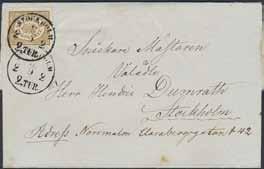 STOCKHOLM
2. TUR.
2. TUR.
Snickare Mästaren
Herr Hindric Dumrath
Stockholm
Adress Norrmalm Clarabergsgatan № 42